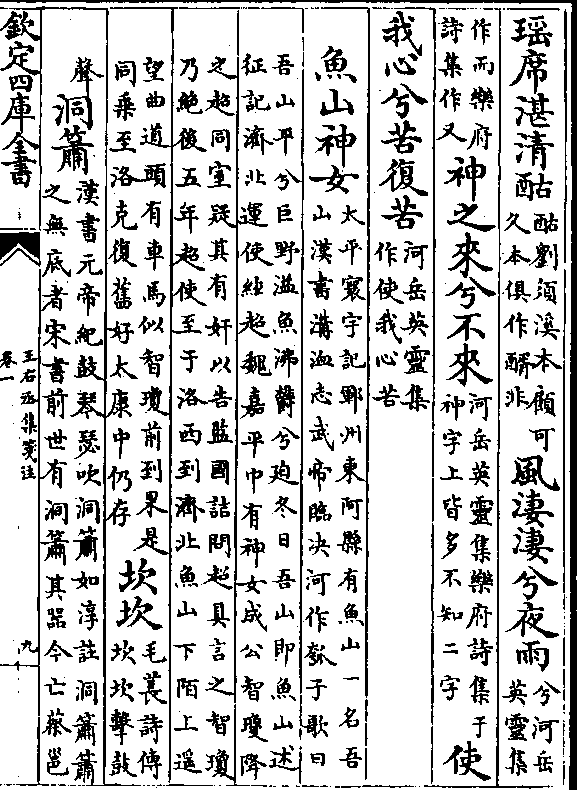 瑶席湛清酤酤劉須溪本顧可
久本俱作醑非風淒淒兮夜雨兮河岳
英靈集
作而樂府
詩集作又神之來兮不來河岳英靈集樂府詩集于
神字上皆多不知二字使
我心兮苦復苦河岳英靈集
作使我心苦
魚山神女太平寰宇記鄆州東阿縣有魚山一名吾
山漢書溝洫志武帝臨決河作瓠子歌曰
吾山平兮巨野溢魚沸鬱兮廹冬日吾山即魚山述
征記濟北運使絃超魏嘉平中有神女成公智瓊降
之超同室疑其有奸以告監國詰問超具言之智瓊
乃絶後五年超使至于洛西到濟北魚山下陌上遥
望曲道頭有車馬似智瓊前到果是
同乘至洛克復舊好太康中仍存坎坎毛萇詩傳
坎坎擊鼓
聲洞簫漢書元帝紀鼓琴瑟吹洞簫如淳註洞簫簫
之無底者宋書前世有洞簫其器今亡蔡邕
欽定四庫全書
王右丞集箋注
卷一
九